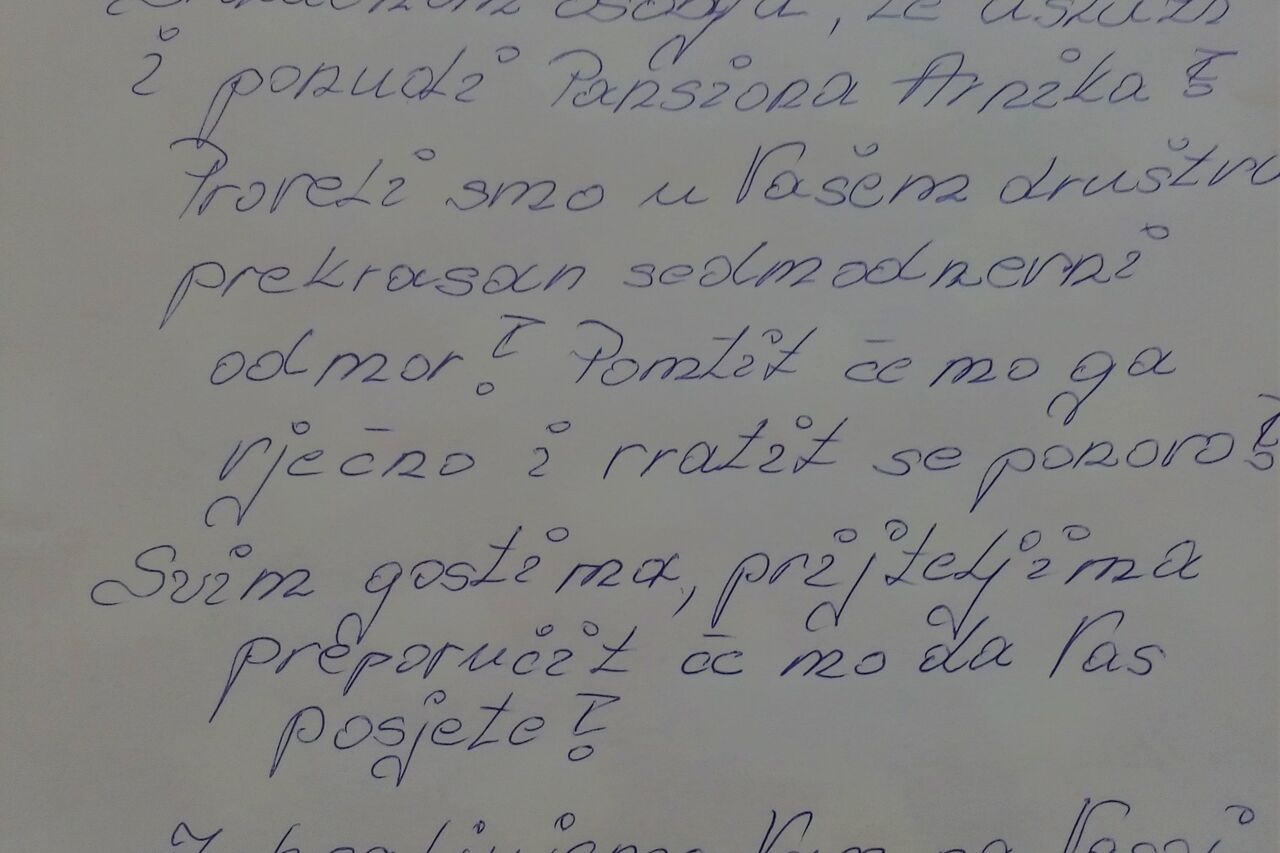 osoblja, te usluzi
i ponudi Pansiona Arnika!
Proveli smo u Vašem društvu
prekrasan sedmodnevni
odmor! Pomtit će mo ga
vječno i vratit se ponovo!
Svim gostima, prijteljima
preporučit će mo da Vas
posjete!
Vam na